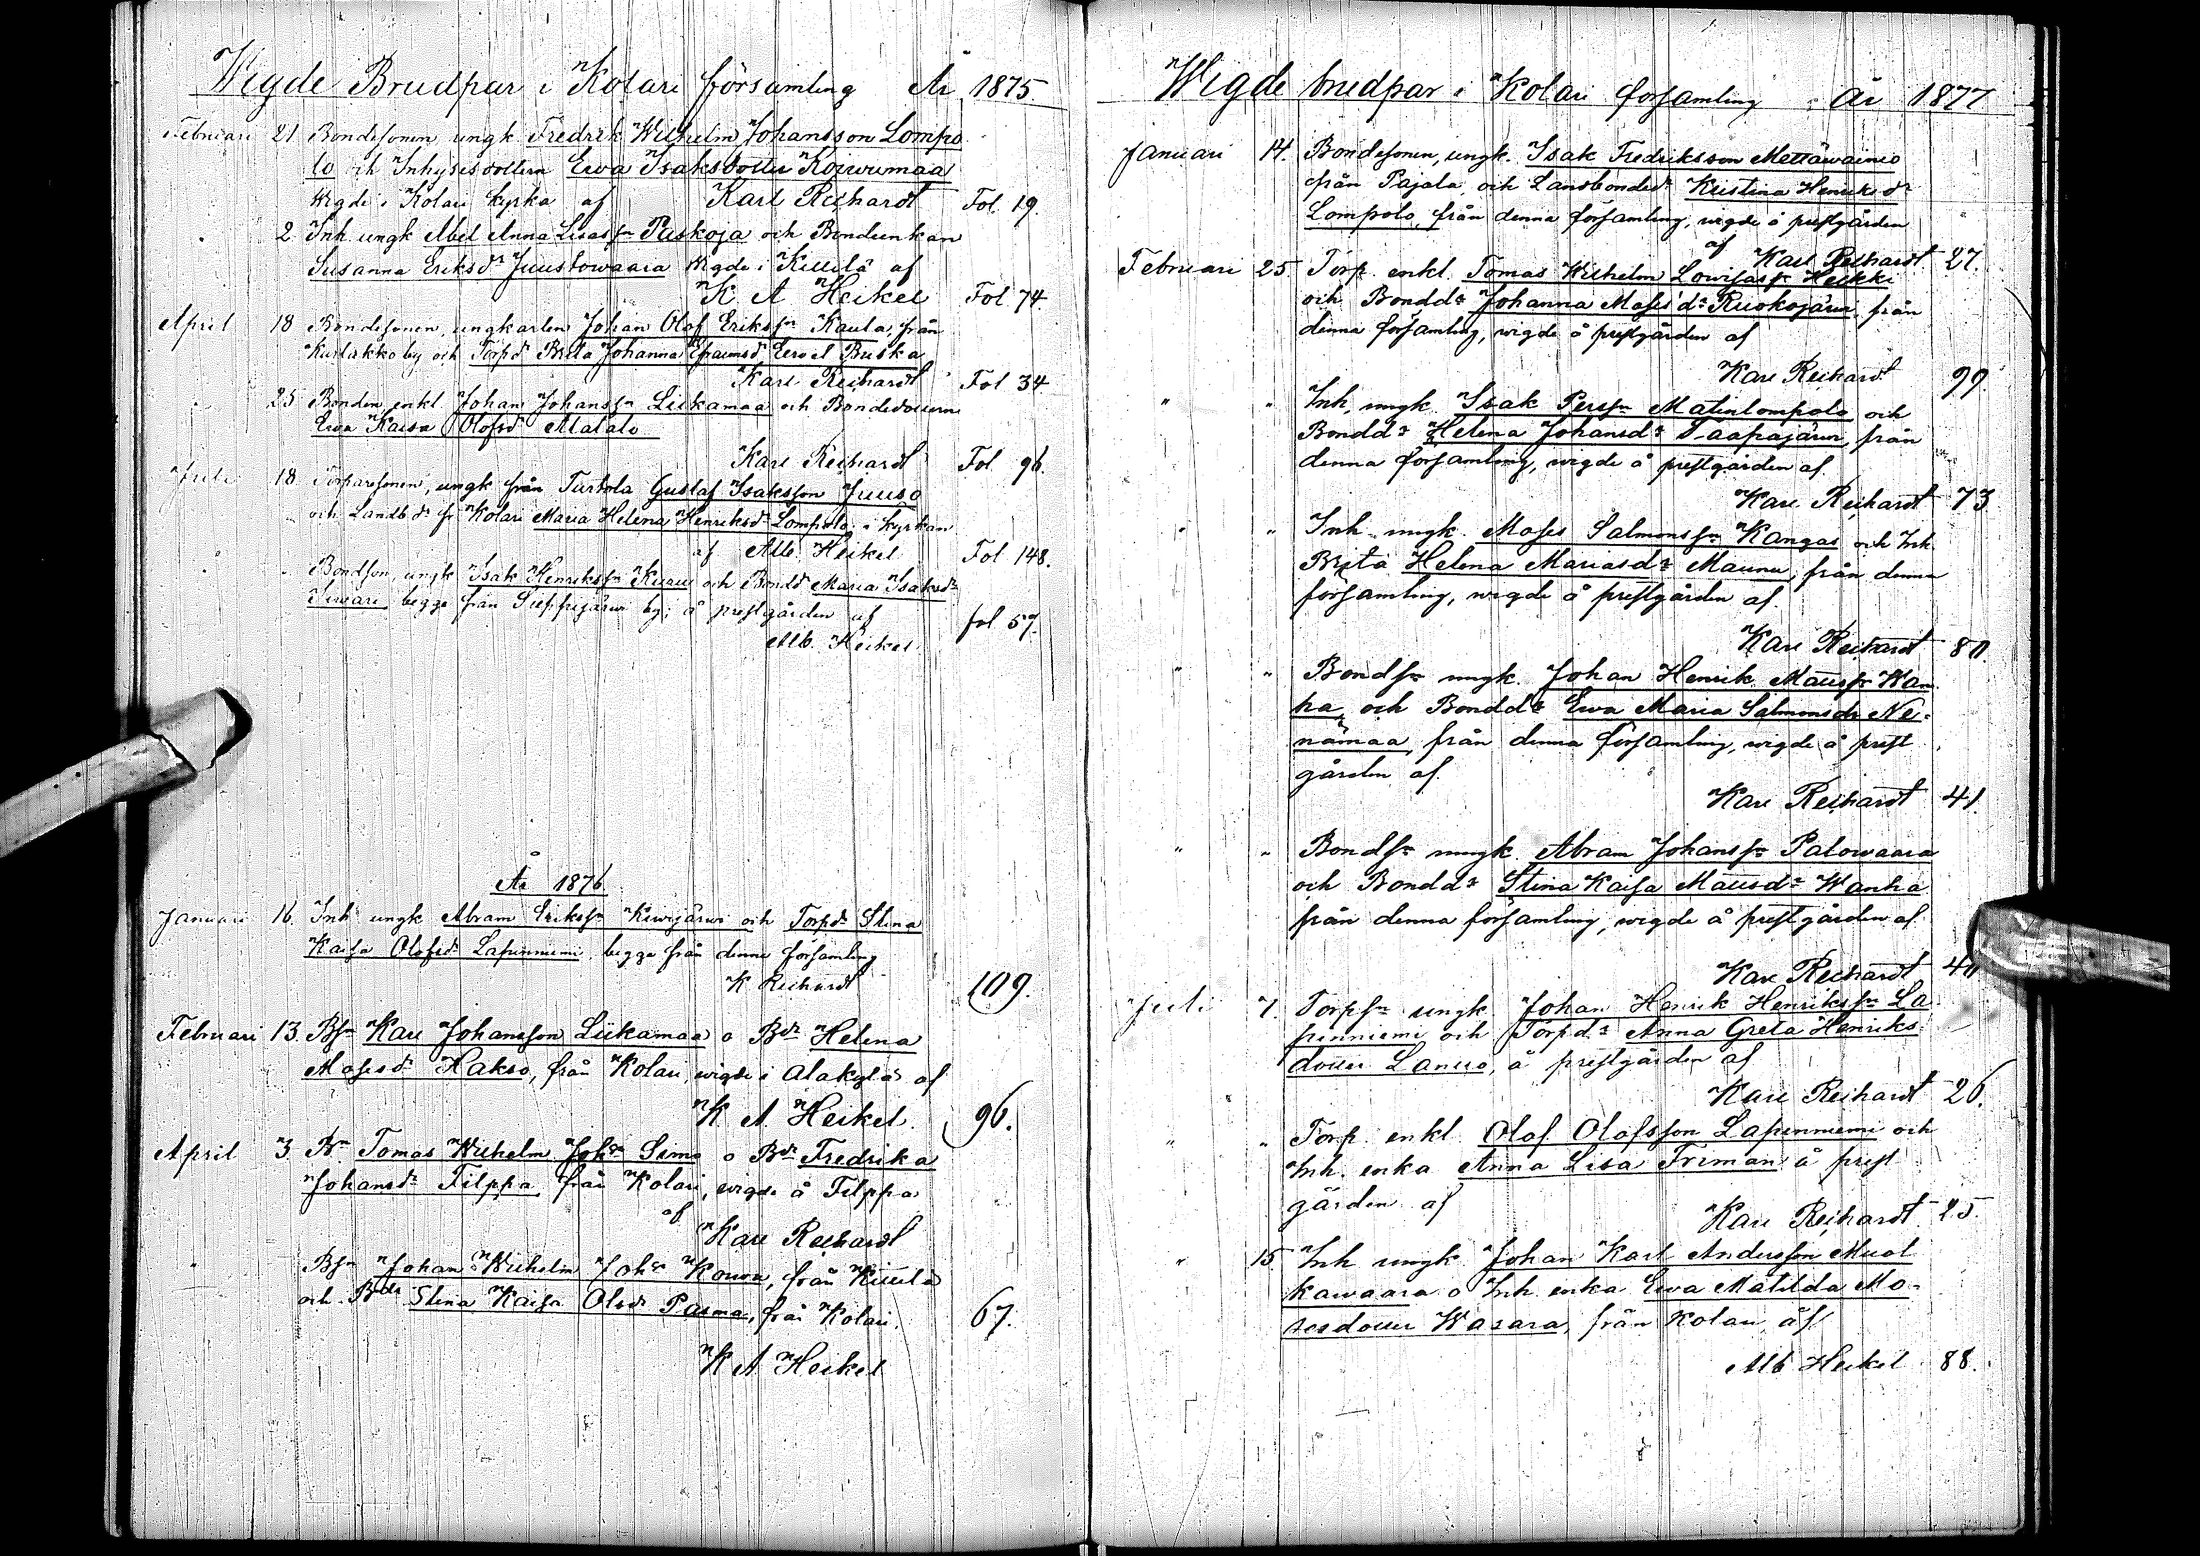 Wigde Brudpar i Kolari församling År 1875.
Februari 21 Bondesonen ungk Fredrik Wilhelm Johansson Lompo
lo och Inhysesdottern Ewa Isaksdotter Koiwumaa
Wigde i Kolari kyrka af Karl Reihardt Fol. 19.
" 2 Inh ungk Abel Anna Lisas sn Puskoja och Bondeenkan
Susanna Eriksdr Juustowaara wigde i Kiuilä af
K A Heikel Fol 74.
April 18 Bondesonen, ungkarlen Johan Olof Eriksson Kaula, från
Kurtakko by och Torpd Brita Johanna Efraimsd Eero el Buska
Karl Reihardt Fol 34
" 25 Bonden enkl Johan Johansson Liikamaa och Bondedottern
Ewa Kaisa Olofsd Alatalo
Karl Reihardt Fol 96.
Juli 18 Torparesonen, ungk från Turtola Gustaf Isaksson Juuso
och Landb dr fr Kolari Maria Helena Henriksdr Lompolo, i kyrkan
af Alb. Heikel Fol 148.
" " Bondson, ungk Isak Henriksson Kuru och Bondd Maria Isaksdr
begge från Sieppijärwi by; å prestgården af
Alb. Heikel fol 57.
År 1876
Januari 16. Inh ungk Abram Eriksson Kiwijärwi och Torpdr Stina
Kaisa Olofsdr Lapinniemi, begge från denna församling
K Reihardt 109.
Februari 13. Bsn Karl Johansson Liikamaa o Bdr Helena
Mosesdr Hakso, från Kolari, wigde i Alakylä af
K A. Heikel. 96.
April 3. Bn Tomas Wilhelm Joh Simo o Bdr Fredrika
Johansdr Filppa från Kolari, wigde å Filppa
af Karl Reihardt
" Bsn Johan Wilhelm Johs från Kiuilä
och Bdr Stina Kaisa Olsdr Pasma, från Kolari. 67.
K A Heikel
Wigde brudpar i Kolari församling år 1877
Januari 14. Bondesonen, ungk. Isak Fredriksson Mettäwainio
från Pajala, och Landbonded Kristina Henriksdr
Lompolo, från denna församling, wigde å prestgården
af Karl Reihardt 27.
Februari 25. Torp. enkl. Tomas Wilhelm Lowisas sn Heikki
och Bonddr Johanna Mosesdr Ruokojärwi, från
denna församling, wigde å prestgården af
Karl Reihardt 99.
" " Inh, ungk. Isak Persson Matinlompolo och
Bonddr Helena Johansdr Taapajärwi, från
denna församling, wigde å prestgården af.
Karl Reihardt 73
" " Inh. ungk. Moses Salmonsson Kangas och Inh.
Brita Helena Mariasdr Maunu, från denna
församling, wigde å prestgården af.
Karl Reihardt 80.
" " Bondsn ungk. Johan Henrik Matsson Wan
ha och Bonddr Ewa Maria Salmonsdr Ne-
nämaa, från denna församling, wigde å prest
gården af.
Karl Reihardt 41.
" " Bondsn ungk. Abram Johansson Palowaara
och Bonddr Stina Kaisa Matsdr Wanha
från denna församling, wigde å prestgården af.
Karl Reihardt
Juli 7. Torpsn ungk Johan Henrik Henriksson La
pinniemi och Torpdr Anna Greta Henriks
dotter Lanto, å prestgården af
Karl Reihardt 26.
" " Torp. enkl. Olof Olofsson Lapinniemi och
Inh. enka Anna Lisa Friman å prest
gården af
Karl Reihardt 25.
" 15. Inh ungk Johan Karl Andersson Muot
kawaara o Inh. enka Ewa Matilda Mo-
sesdotter Wasara, från Kolari af
Alb Heikel 88.